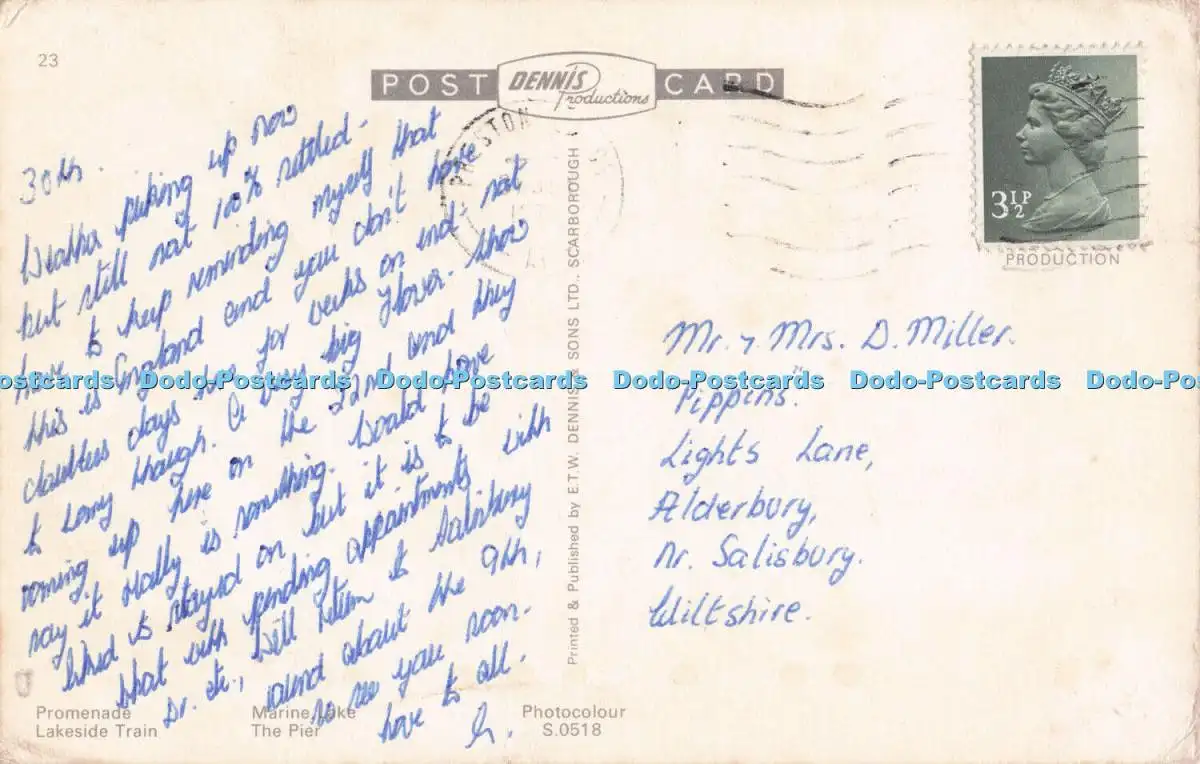 23
POST DENNIS Productions CARD
PRESTON
3½P
PRODUCTION
30th.
Weather picking up now
but still not 100% settled -
have to keep reminding myself that
this is England and you don't have
cloudless days here for weeks on end not
to worry though. A very big flower show
coming up here on the 22nd and they
say it really is something. Would have
liked to stayed on, but it is to be
what with pending appointments with
Dr. etc., will return to Salisbury
round about the 9th,
so see you soon.
Love to all.
Mr. & Mrs. D. Miller.
"Pippins."
Lights Lane,
Alderbury,
Nr. Salisbury.
Wiltshire.
Printed & Published by E.T.W. DENNIS & SONS LTD., SCARBOROUGH
Promenade Marine Lake
Lakeside Train The Pier
Photocolour
S.0518
Dodo-Postcards Dodo-Postcards Dodo-Postcards Dodo-Postcards Dodo-Postcards